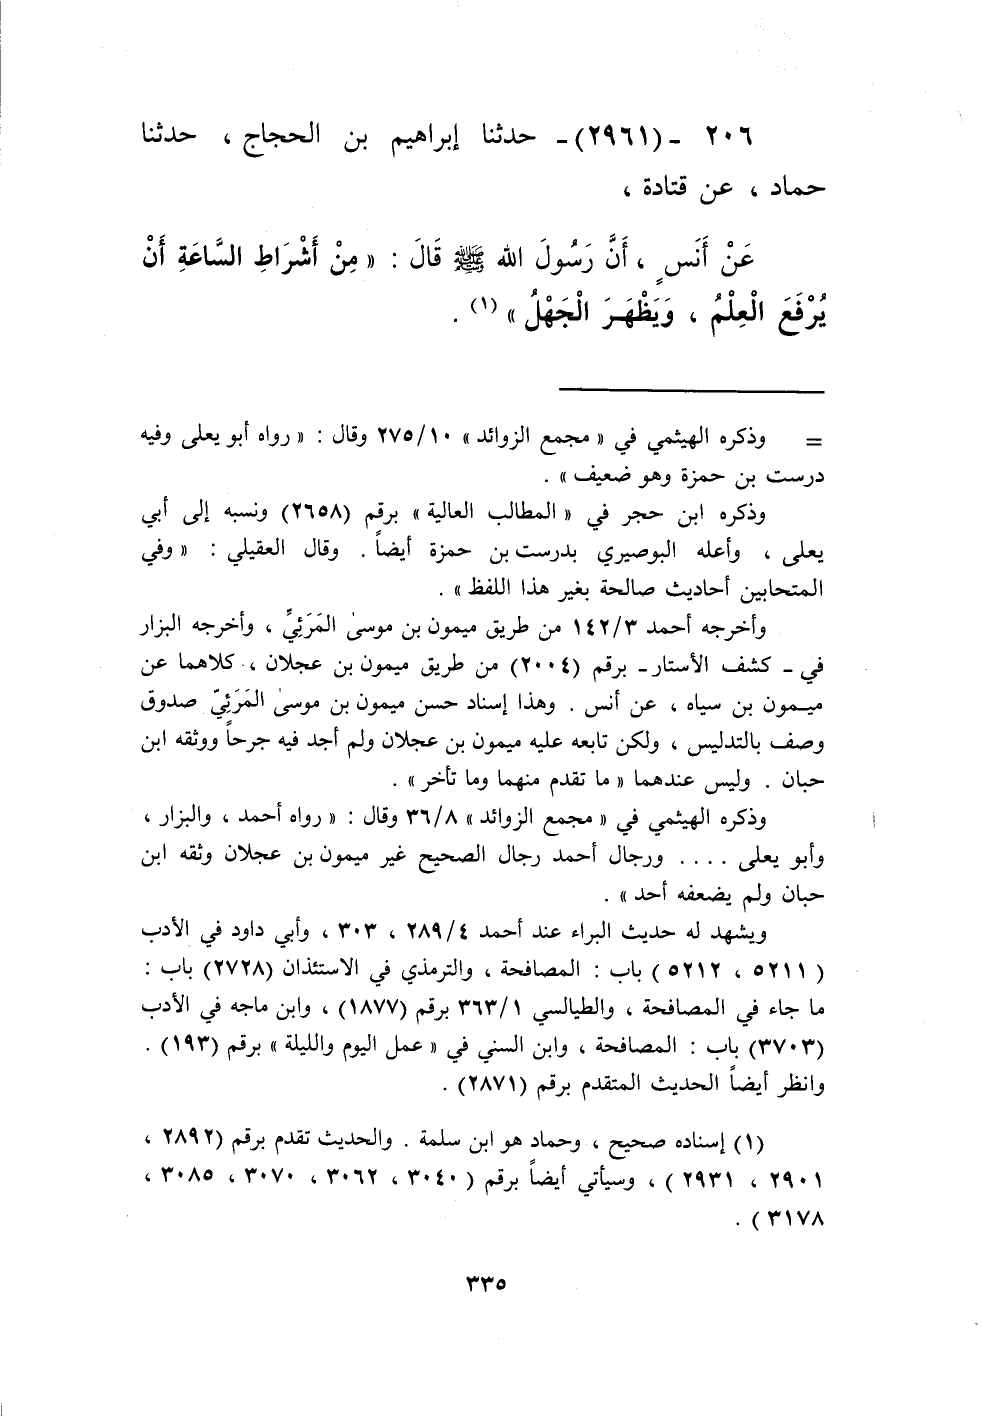 ٢٠٦ - (٢٩٦١) - حدثنا إبراهيم بن الحجاج ، حدثنا
حماد ، عن قتادة ،
عَنْ أَنَسٍ ، أَنَّ رَسُولَ الله ﷺ قَالَ : « مِنْ أَشْرَاطِ السَّاعَةِ أَنْ
يُرْفَعَ الْعِلْمُ ، وَيَظْهَرَ الْجَهْلُ » (١) .
= وذكره الهيثمي في « مجمع الزوائد » ٢٧٥/١٠ وقال : « رواه أبو يعلى وفيه
درست بن حمزة وهو ضعيف » .
وذكره ابن حجر في « المطالب العالية » برقم (٢٦٥٨) ونسبه إلى أبي
يعلى ، وأعله البوصيري بدرست بن حمزة أيضاً . وقال العقيلي : « وفي
المتحابين أحاديث صالحة بغير هذا اللفظ » .
وأخرجه أحمد ١٤٢/٣ من طريق ميمون بن موسىٰ المَرَئِيِّ ، وأخرجه البزار
في - كشف الأستار - برقم (٢٠٠٤) من طريق ميمون بن عجلان ، كلاهما عن
ميمون بن سياه ، عن أنس . وهذا إسناد حسن ميمون بن موسىٰ المَرَئِيّ صدوق
وصف بالتدليس ، ولكن تابعه عليه ميمون بن عجلان ولم أجد فيه جرحاً ووثقه ابن
حبان . وليس عندهما « ما تقدم منهما وما تأخر » .
وذكره الهيثمي في « مجمع الزوائد » ٣٦/٨ وقال : « رواه أحمد ، والبزار ،
وأبو يعلى .... ورجال أحمد رجال الصحيح غير ميمون بن عجلان وثقه ابن
حبان ولم يضعفه أحد » .
ويشهد له حديث البراء عند أحمد ٢٨٩/٤ ، ٣٠٣ ، وأبي داود في الأدب
( ٥٢١١ ، ٥٢١٢ ) باب : المصافحة ، والترمذي في الاستئذان (٢٧٢٨) باب :
ما جاء في المصافحة ، والطيالسي ٣٦٣/١ برقم (١٨٧٧) ، وابن ماجه في الأدب
(٣٧٠٣) باب : المصافحة ، وابن السني في « عمل اليوم والليلة » برقم (١٩٣) .
وانظر أيضاً الحديث المتقدم برقم (٢٨٧١) .
(١) إسناده صحيح ، وحماد هو ابن سلمة . والحديث تقدم برقم (٢٨٩٢ ،
٢٩٠١ ، ٢٩٣١ ) ، وسيأتي أيضاً برقم ( ٣٠٤٠ ، ٣٠٦٢ ، ٣٠٧٠ ، ٣٠٨٥ ،
٣١٧٨ ) .
٣٣٥